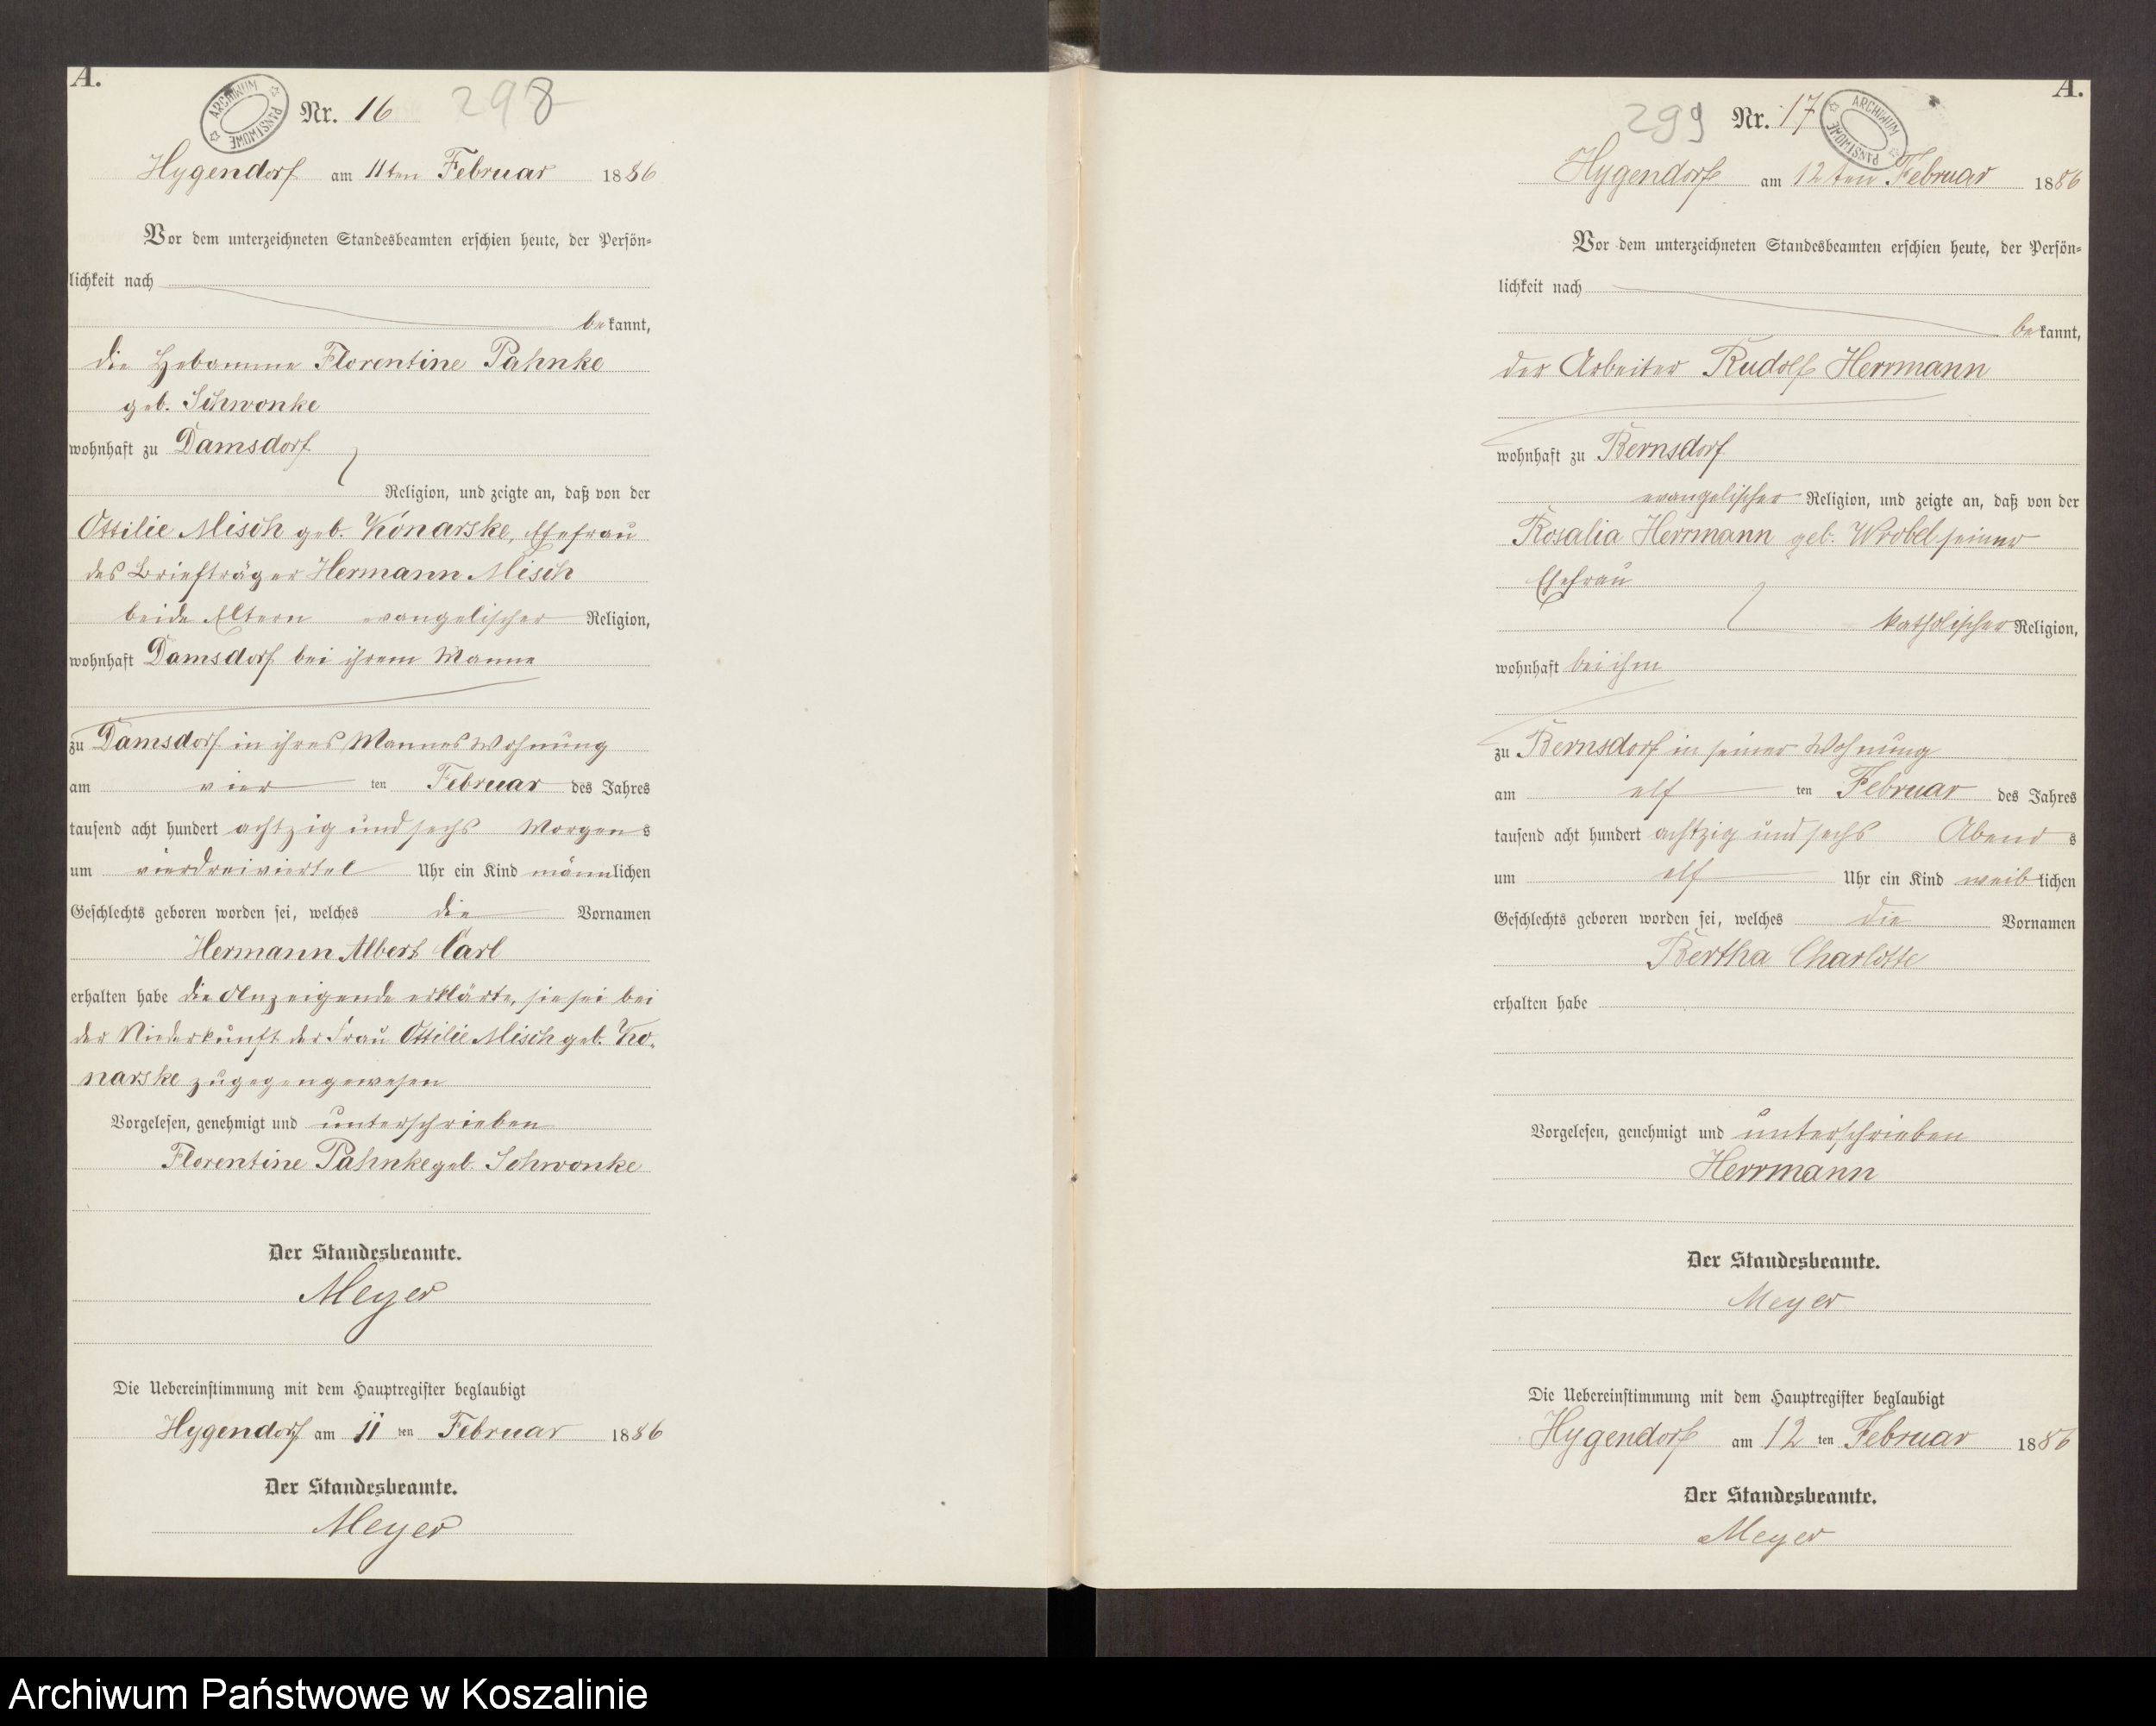 A.
ARCHIWUM PAŃSTWOWE
Nr. 16
298
Hygendorf am 11ten Februar 1886
Vor dem unterzeichneten Standesbeamten erschien heute, der Persön-
lichkeit nach
bekannt,
die Hebamme Florentine Pahnke
geb. Schwonke
wohnhaft zu Damsdorf
Religion, und zeigte an, daß von der
Ottilie Misch geb. Konarske, Ehefrau
des Briefträger Hermann Misch
beide Eltern evangelischer Religion,
wohnhaft Damsdorf bei ihrem Manne
zu Damsdorf in ihres Mannes Wohnung
am vier ten Februar des Jahres
tausend acht hundert achtzig und sechs Morgens
um vierdreiviertel Uhr ein Kind männlichen
Geschlechts geboren worden sei, welches die Vornamen
Hermann Albert Carl
erhalten habe die Anzeigende erklärte, sie sei bei
der Niederkunft der Frau Ottilie Misch geb. Ko-
narske zugegen gewesen
Vorgelesen, genehmigt und unterschrieben
Florentine Pahnke geb. Schwonke
Der Standesbeamte.
Meyer
Die Uebereinstimmung mit dem Hauptregister beglaubigt
Hygendorf am 11 ten Februar 1886
Der Standesbeamte.
Meyer
A.
299
Nr. 17
ARCHIWUM PAŃSTWOWE
Hygendorf am 12ten Februar 1886
Vor dem unterzeichneten Standesbeamten erschien heute, der Persön-
lichkeit nach
bekannt,
der Arbeiter Rudolf Herrmann
wohnhaft zu Bernsdorf
evangelischer Religion, und zeigte an, daß von der
Rosalia Herrmann geb. Wrobel seiner
Ehefrau
katholischer Religion,
wohnhaft bei ihm
zu Bernsdorf in seiner Wohnung
am elf ten Februar des Jahres
tausend acht hundert achtzig und sechs Abends
um elf Uhr ein Kind weiblichen
Geschlechts geboren worden sei, welches die Vornamen
Bertha Charlotte
erhalten habe
Vorgelesen, genehmigt und unterschrieben
Herrmann
Der Standesbeamte.
Meyer
Die Uebereinstimmung mit dem Hauptregister beglaubigt
Hygendorf am 12 ten Februar 1886
Der Standesbeamte.
Meyer
Archiwum Państwowe w Koszalinie